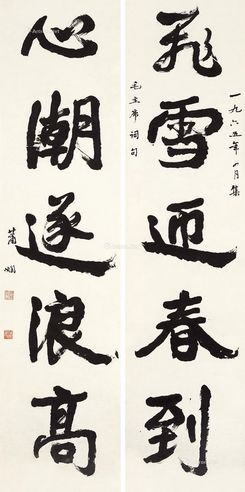 飛雪迎春到
一九六五年月集
毛主席詞句
心潮逐浪高
蕭嫻